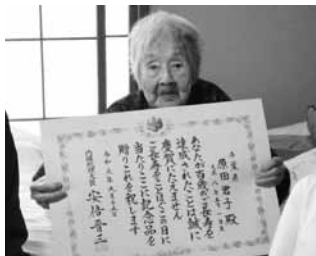 原田君子殿
あなたが百歳のご長寿を
達成されたことは誠に
慶賀にたえません
ご長寿をことほぐこの日に
当たりここに記念品を
贈りこれを祝します
内閣総理大臣 安倍晋三